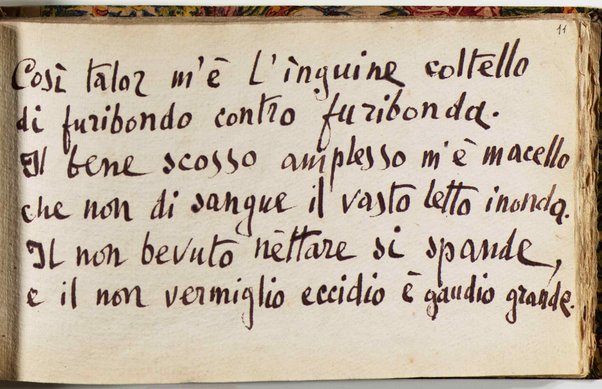 11
Così talor m'è l'inguine coltello
di furibondo contro furibonda.
Il bene scosso amplesso m'è macello
che non di sangue il vasto letto inonda.
Il non bevuto nèttare si spande,
e il non vermiglio eccidio è gaudio grande.